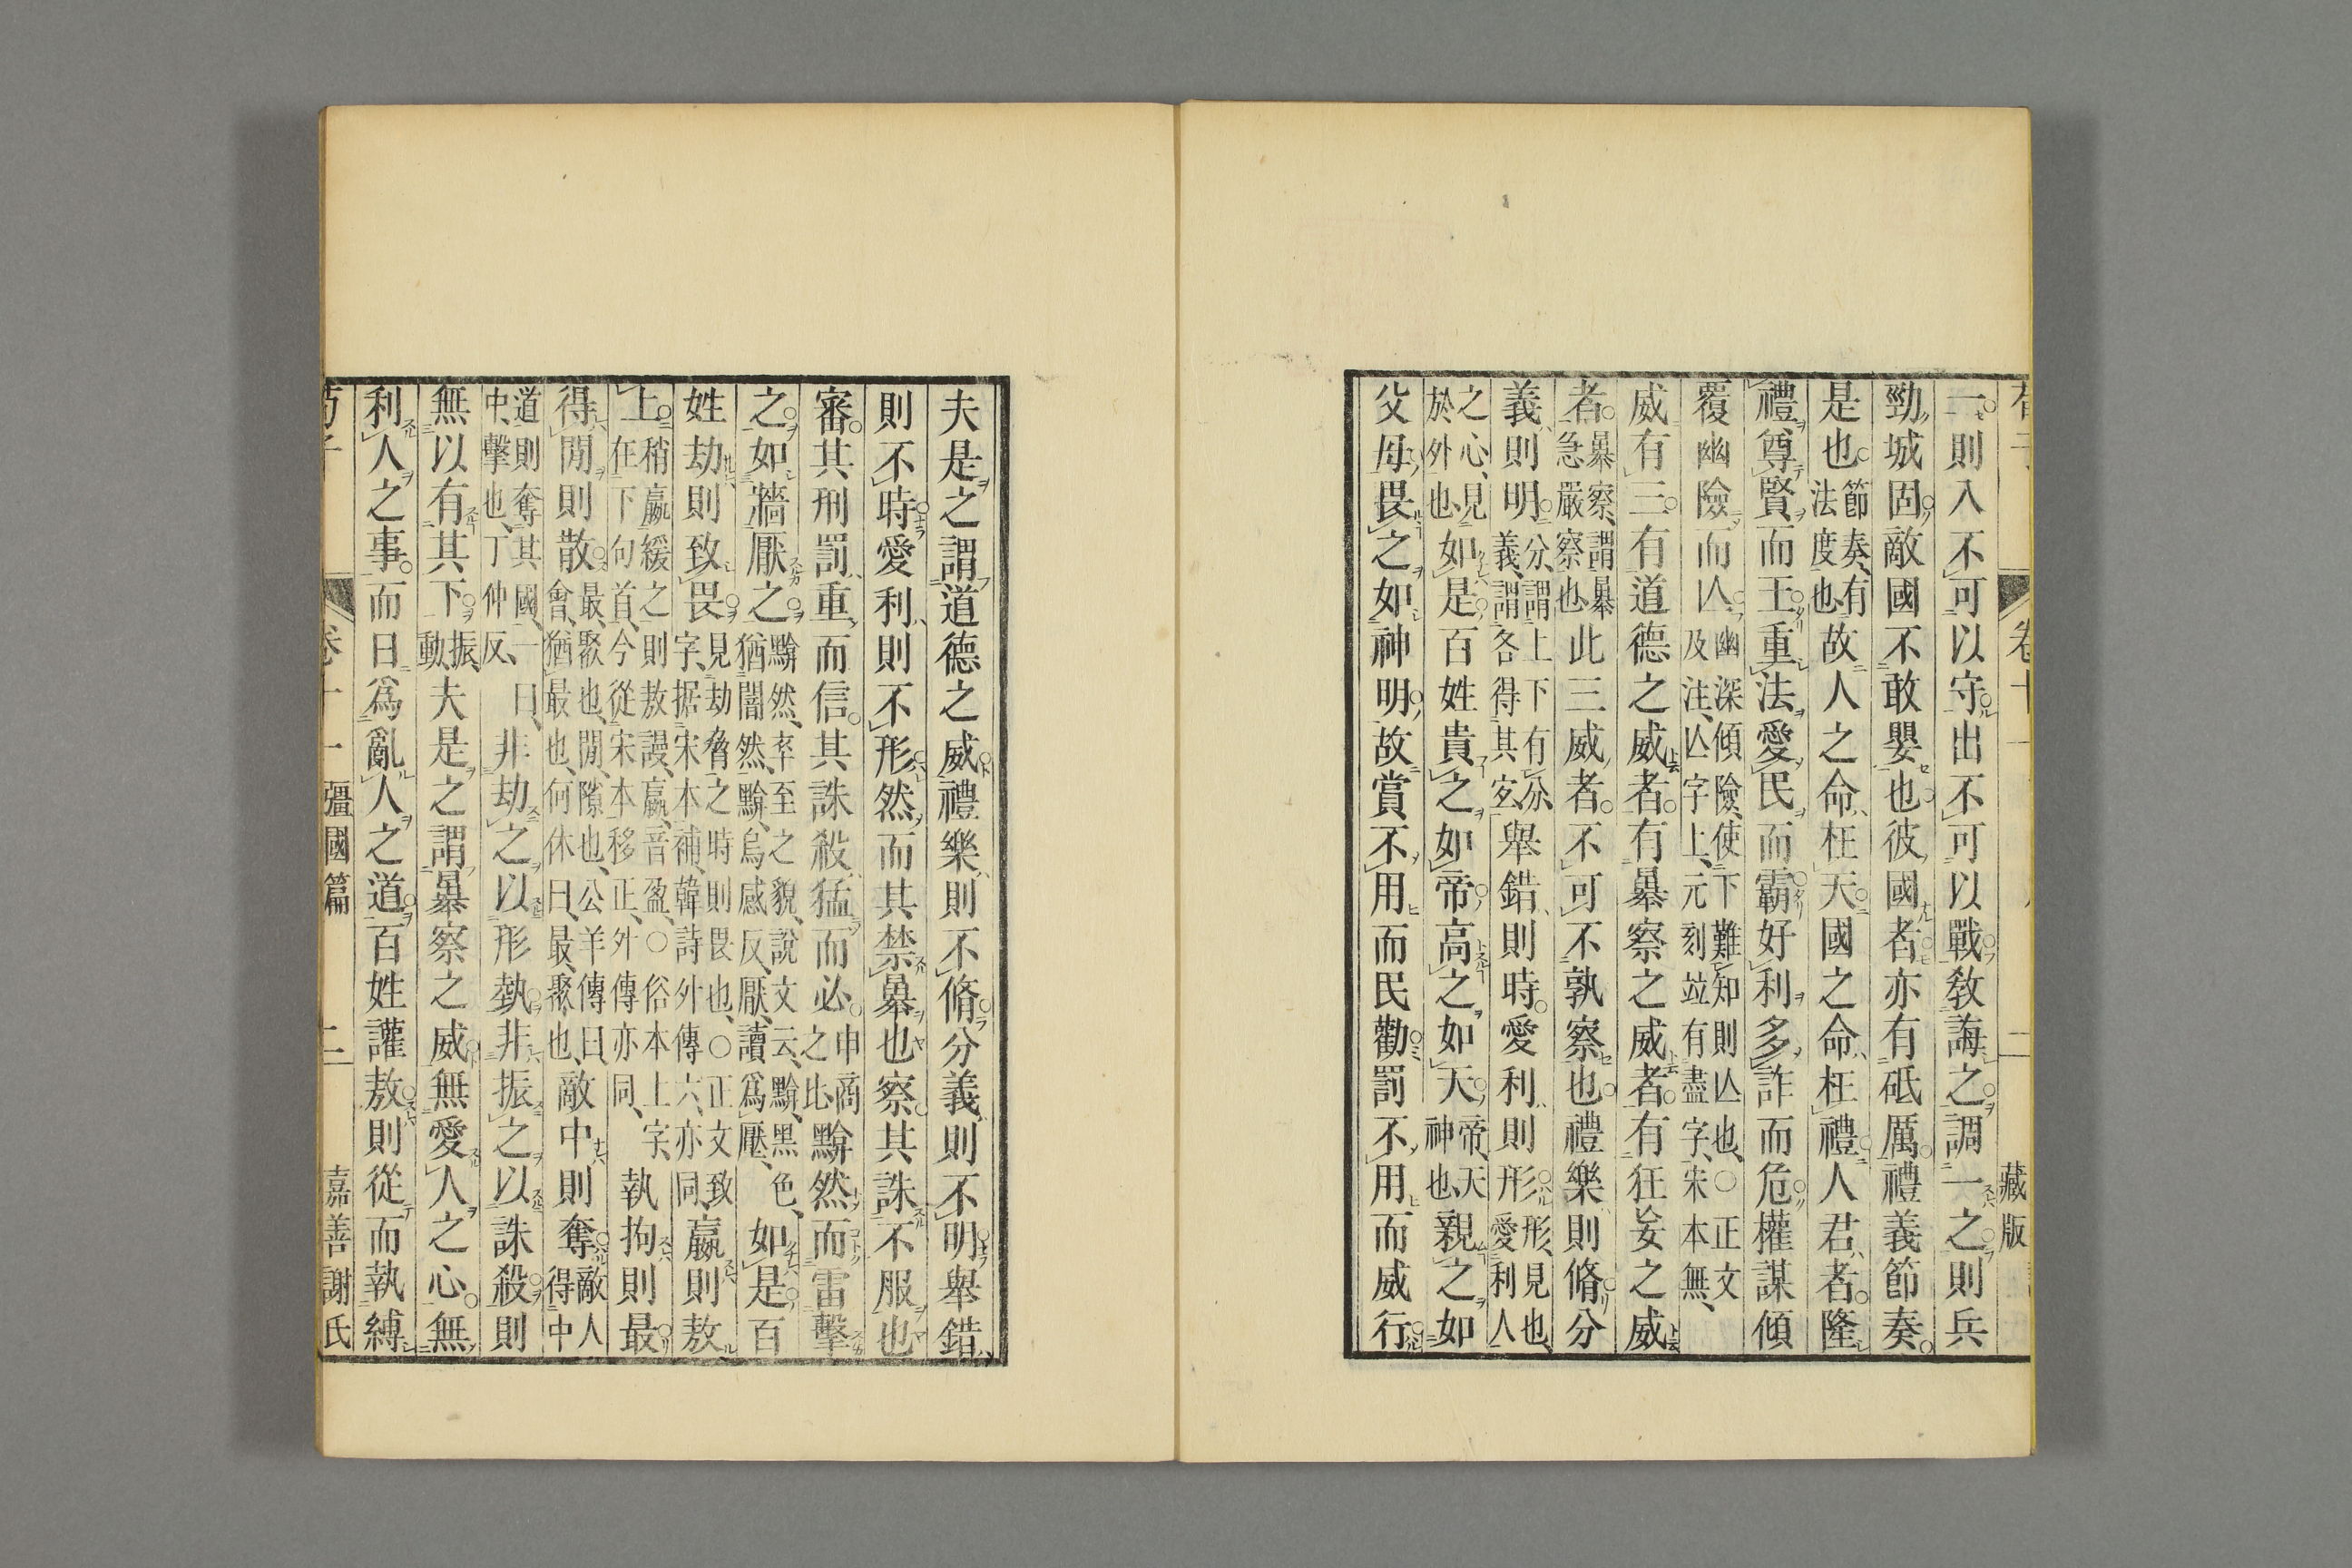 一則入不可以守出不可以戰敎誨之調一之則兵
勁城固敵國不敢嬰也彼國者亦有砥厲禮義節奏
是也節奏、有法度也故人之命、枉天國之命、枉禮人君、者隆
禮、尊賢而王重法愛民而霸好利多詐而危權謀傾
覆幽險而亾幽深傾險、使下難知則亾也、○正文及注、亾字上、元刻竝有盡字、宋本無、
威有三有道德之威者有暴察之威者有狂妄之威
者暴察、謂暴急嚴察也此三威者不可不孰察也禮樂則脩分
義則明分、謂上下有分、義、謂各得其宐舉錯則時愛利則形形、見也、愛利人
之心、見於外也、如是百姓貴之如帝高之如天帝、天神也、親之如
父母畏之如神明故賞不用而民勸罰不用而威行
夫是之謂道德之威禮樂則不脩分義則不明舉錯
則不時愛利則不形然而其禁暴也察其誅不服也
審其刑罰重而信其誅殺猛而必申商之比黭然而雷擊
之如牆厭之黭然、卒至之貌、說文云、黭、黑色、猶闇然、黭、烏感反、厭、讀爲壓、如是百
姓劫則致畏見劫脅之時則畏也、○正文致字、据宋本補、韓詩外傳六、亦同、嬴則敖
上稍嬴緩之則敖謾、嬴、音盈、○俗本上字、在下句首、今從宋本移正、外傳亦同、執拘則最
得閒則散最、聚也、閒、隙也、公羊傳曰、會、猶最也、何休曰、最、聚也、敵中則奪敵人得中
道則奪其國、一曰、中、擊也、丁仲反、非劫之以形埶非振之以誅殺則
無以有其下振、動、夫是之謂暴察之威無愛人之心無
利人之事而日爲亂人之道百姓讙敖則從而執縛
彊國篇
二
嘉善謝氏
藏版